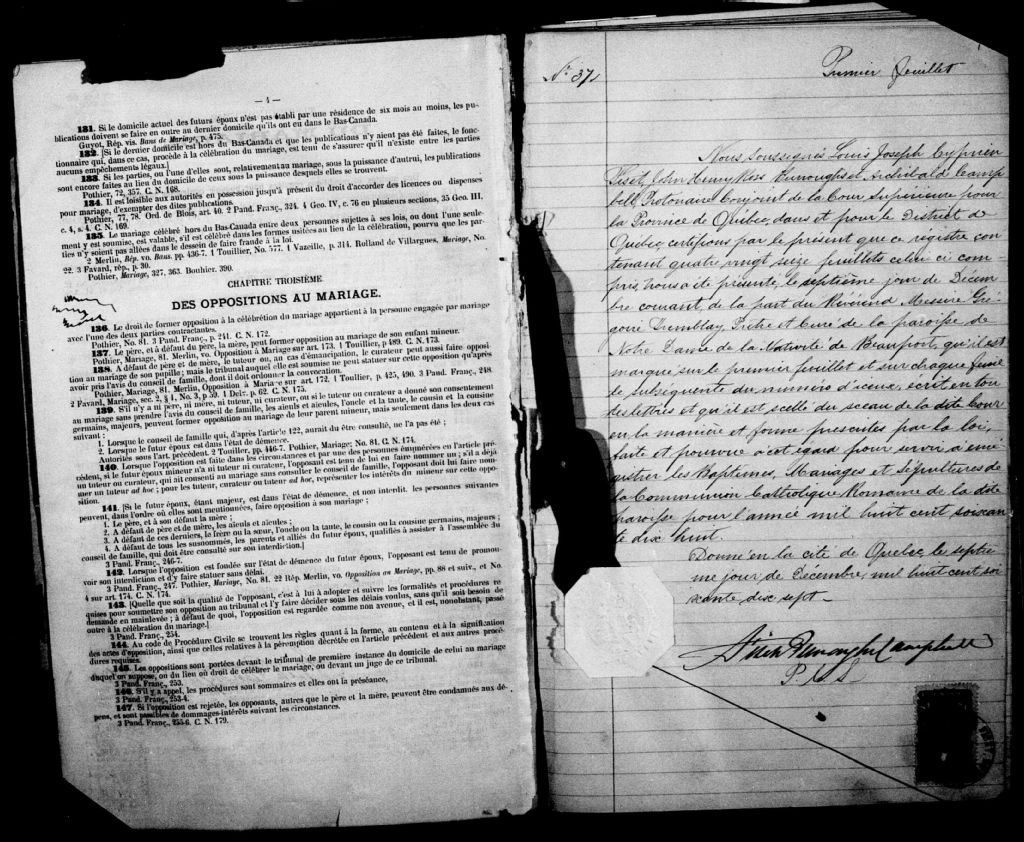 — 4 —
131. Si le domicile actuel des futurs époux n'est pas établi par une résidence de six mois au moins, les pu-
blications doivent se faire en outre au dernier domicile qu'ils ont eu dans le Bas-Canada.
Guyot, Rép. vis. Bans de Mariage, p. 475.
132. [Si le dernier domicile est hors du Bas-Canada et que les publications n'y aient pas été faites, le fonc-
tionnaire qui, dans ce cas, procède à la célébration du mariage, est tenu de s'assurer qu'il n'existe entre les parties
aucuns empêchements légaux.]
133. Si les parties, ou l'une d'elles sont, relativement au mariage, sous la puissance d'autrui, les publications
sont encore faites au lieu du domicile de ceux sous la puissance desquels elles se trouvent.
Pothier, 72, 357. C. N. 168.
134. Il est loisible aux autorités en possession jusqu'à présent du droit d'accorder des licences ou dispenses
pour mariage, d'exempter des dites publications.
Pothier, 77, 78. Ord. de Blois, art. 40. 2 Pand. Franç., 324. 4 Geo. IV, c. 76 en plusieurs sections, 35 Geo. III.
c. 4, s. 4. C. N. 169.
135. Le mariage célébré hors du Bas-Canada entre deux personnes sujettes à ses lois, ou dont l'une seule-
ment y est soumise, est valable, s'il est célébré dans les formes usitées au lieu de la célébration, pourvu que les par-
ties n'y soient pas allées dans le dessein de faire fraude à la loi.
2 Merlin, Rép. vo. Bans. pp. 436-7. 1 Touillier, No. 577. 1 Vazeille, p. 314. Rolland de Villargues, Mariage, No.
22. 3 Favard, rép., p. 30.
Pothier, Mariage, 327, 363. Bouhier. 390.
CHAPITRE TROISIÈME
DES OPPOSITIONS AU MARIAGE.
136. Le droit de former opposition à la célébration du mariage appartient à la personne engagée par mariage
avec l'une des deux parties contractantes.
Pothier, No. 81. 3 Pand. Franç., p. 241. C. N. 172.
137. Le père, et à défaut du père, la mère, peut former opposition au mariage de son enfant mineur.
Pothier, Mariage, 81. Merlin, vo. Opposition à Mariage sur art. 173. 1 Touillier, p 489. C. N. 173.
138. A défaut de père et de mère, le tuteur ou, au cas d'émancipation, le curateur peut aussi faire opposi-
tion au mariage de son pupille; mais le tribunal auquel elle est soumise ne peut statuer sur cette opposition qu'après
avoir pris l'avis du conseil de famille, dont il doit ordonner la convocation.
Pothier, Mariage, 81. Merlin, Opposition à Mariage sur art. 172. 1 Touillier, p. 425, 490. 3 Pand. Franç., 248.
2 Favard, Mariage, sec. 2, § 1, No. 3, p 59. 1 Delv. p. 62. C. N. 175.
139. S'il n'y a ni père, ni mère, ni tuteur, ni curateur, ou si le tuteur ou curateur a donné son consentement
au mariage sans prendre l'avis du conseil de famille, les aïeuls et aïeules, l'oncle et la tante, le cousin et la cousine
germains, majeurs, peuvent former opposition au mariage de leur parent mineur, mais seulement dans les deux cas
suivant :
1. Lorsque le conseil de famille qui, d'après l'article 122, aurait du être consulté, ne l'a pas été ;
2. Lorsque le futur époux est dans l'état de démence.
Autorités sous l'art. précédent. 2 Touillier, pp. 446-7. Pothier, Mariage; No. 81. C. N. 174.
140. Lorsque l'opposition est faite dans les circonstances et par une des personnes énumérées en l'article pré-
cédent, si le futur époux mineur n'a ni tuteur ni curateur, l'opposant est tenu de lui en faire nommer un ; s'il a déjà
un tuteur ou curateur, qui ait consenti au mariage sans consulter le conseil de famille, l'opposant doit lui faire nom-
mer un tuteur ad hoc ; pour les tuteur, curateur ou tuteur ad hoc, représenter les intérêts du mineur sur cette oppo-
sition.
141. [Si le futur époux, étant majeur, est dans l'état de démence, et non interdit. les personnes suivantes
peuvent, dans l'ordre où elles sont mentionnées, faire opposition à son mariage ;
1. Le père, et à son défaut la mère ;
2. A défaut de père et de mère, les aïeuls et aïeules ;
3. A défaut de ces derniers, le frère ou la sœur, l'oncle ou la tante, le cousin ou la cousine germains, majeurs ;
4. A défaut de tous les susnommés, les parents et alliés du futur époux, qualifiés à assister à l'assemblée du
conseil de famille, qui doit être consulté sur son interdiction.]
3 Pand. Franç., 246-7.
142. Lorsque l'opposition est fondée sur l'état de démence du futur époux, l'opposant est tenu de promou-
voir son interdiction et d'y faire statuer sans délai.
3 Pand. Franç., 247. Pothier, Mariage, No. 81. 22 Rép. Merlin, vo. Opposition au Mariage, pp. 88 et suiv., et No.
4 sur art. 174. C. N. 174.
143. [Quelque soit la qualité de l'opposant, c'est à lui à adopter et suivre les formalités et procédures re-
quises pour soumettre son opposition au tribunal et l'y faire décider sous les délais voulus, sans qu'il soit besoin de
demande en mainlevée ; à défaut de quoi, l'opposition est regardée comme non avenue, et il est, nonobstant, passé
outre à la célébration du mariage.]
3 Pand. Franç., 254.
144. Au code de Procédure Civile se trouvent les règles quant à la forme, au contenu et à la signification
des actes d'opposition, ainsi que celles relatives à la péremption décrétée en l'article précédent et aux autres procé-
dures requises.
145. Les oppositions sont portées devant le tribunal de première instance du domicile de celui au mariage
duquel on suppose, ou du lieu où droit de célébrer le mariage, ou devant un juge de ce tribunal.
3 Pand. Franç., 253.
146. S'il y a appel, les procédures sont sommaires et elles ont la préséance.
3 Pand. Franç., 253-4.
147. Si l'opposition est rejetée, les opposants, autres que le père et la mère, peuvent être condamnés aux dé-
pens, et sont passibles de dommages-intérêts suivant les circonstances.
3 Pand. Franç., 253-6. C. N. 179.
No 37
Premier feuillet
Nous soussignés Louis Joseph Cyprien
Fiset, John Henry Ross Burroughs et Archibald Camp
bell, Protonaire Conjoint de la Cour Supérieure pour
la Province de Québec, dans et pour le District de
Québec certifions par le présent que ce régistre con
tenant quatre vingt seize feuillets celui ci com
pris, nous a été présenté, le septième jour de Décem
bre courant, de la part du Révérend Messire Gré
goire Tremblay, Prêtre et Curé de la paroisse de
Notre Dame de la Nativité de Beauport, qu'il est
marqué sur le premier feuillet et sur chaque feuil
let subséquents du numéro d'iceux, écrit en tou
tes lettres et qu'il est scellé du sceau de la dite Cour
en la manière et forme prescrites par la loi,
faite et pourvue à cet égard pour servir à enré
gistrer les Baptêmes, Mariages et Sépultures de
la Communion Catholique Romaine de la dite
paroisse pour l'année mil huit cent soixan
te dix huit.
Donné en la cité de Québec, le septiè
me jour de Décembre, mil huit cent soi
xante dix sept —
Fiset Burroughs Campbell
P. C. S.